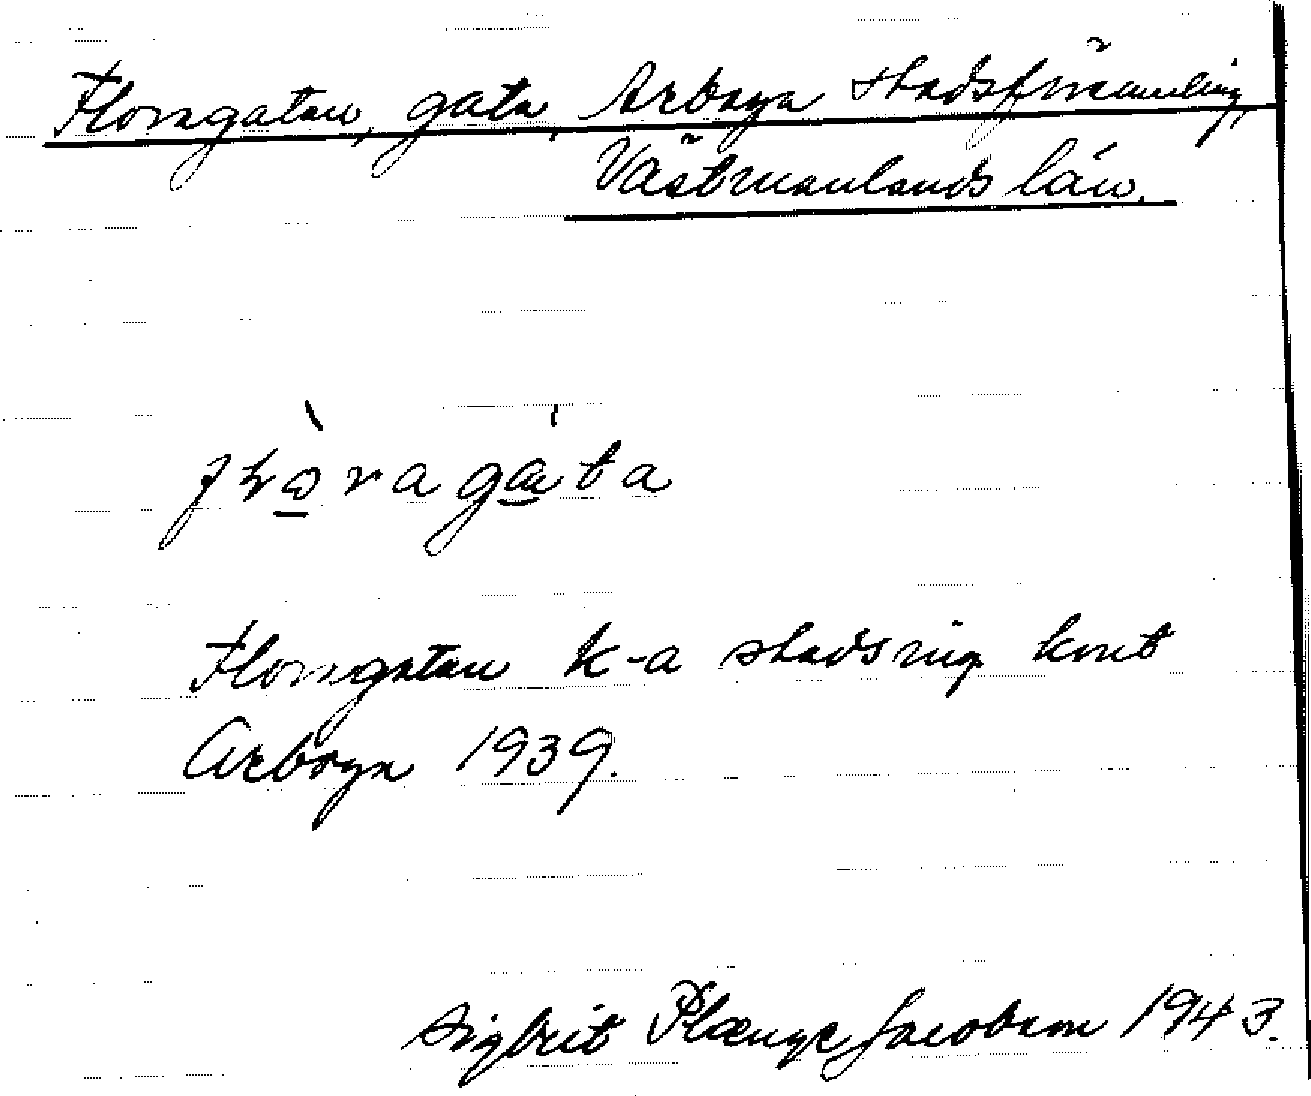 Floragatan, gata, Arboga stadsförsamling,
Västmanlands län.
Floragatan k-a stadsing kont
Arboga 1939.
Sigbrit Plænge Jacobson 1943.